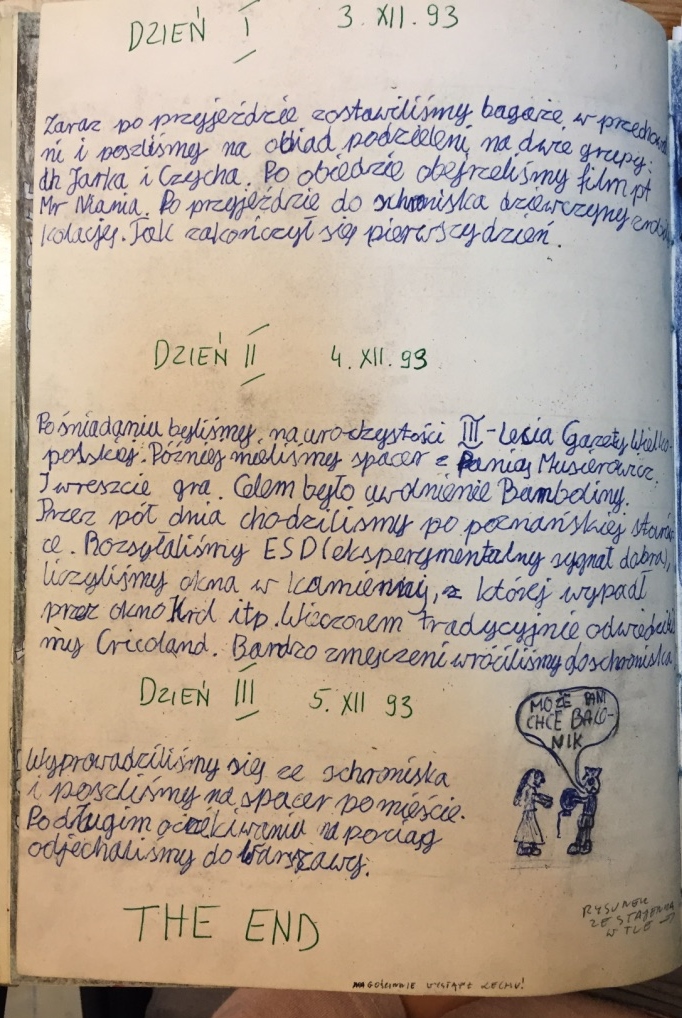 DZIEŃ I 3. XII. 93
Zaraz po przyjeździe zostawiliśmy bagaże w przechowal
ni i poszliśmy na obiad podzieleni na dwie grupy:
dh Jarka i Czycha. Po obiedzie obejrzeliśmy film pt
Mr Niania. Po przyjeździe do schroniska dziewczyny zrobiły
kolację. Tak zakończył się pierwszy dzień.
DZIEŃ II 4. XII. 93
Po śniadaniu byliśmy na uroczystości III-lecia Gazety Wielko-
polskiej. Później mieliśmy spacer z Panią Musierowicz.
I wreszcie gra. Celem było uwolnienie Bamboliny.
Przez pół dnia chodziliśmy po poznańskiej starów
ce. Rozsyłaliśmy ESD (eksperymentalny sygnał dobra),
liczyliśmy okna w kamienicy, z której wypadł
przez okno Król itp. Wieczorem tradycyjnie odwiedzili
my Cricoland. Bardzo zmęczeni wróciliśmy do schroniska
DZIEŃ III 5. XII 93
MOŻE PANI
CHCE BALO-
NIK
Wyprowadziliśmy się ze schroniska
i poszliśmy na spacer po mieście.
Po długim oczekiwaniu na pociąg
odjechaliśmy do Warszawy.
THE END
RYSUNEK
ZE STAJENKĄ
W TLE
NAGOŚCINNIE WYSTĄPŁ LECHU!